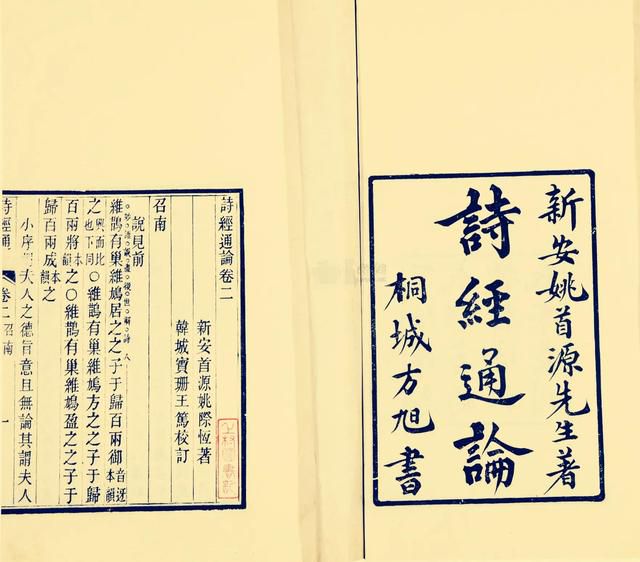 新安姚首源先生著
詩經通論
桐城方旭書
詩經通論卷二
新安首源姚際恆著
韓城寶珊王篤校訂
召南
說見前
維鵲有巢維鳩居之之子于歸百兩御音迓本韻
之興而比也下同〇維鵲有巢維鳩方之之子于歸
百兩將本韻之〇維鵲有巢維鳩盈之之子于
歸百兩成本韻之
小序夫人之德旨意且無論其謂夫人
詩經通
卷二召南
一